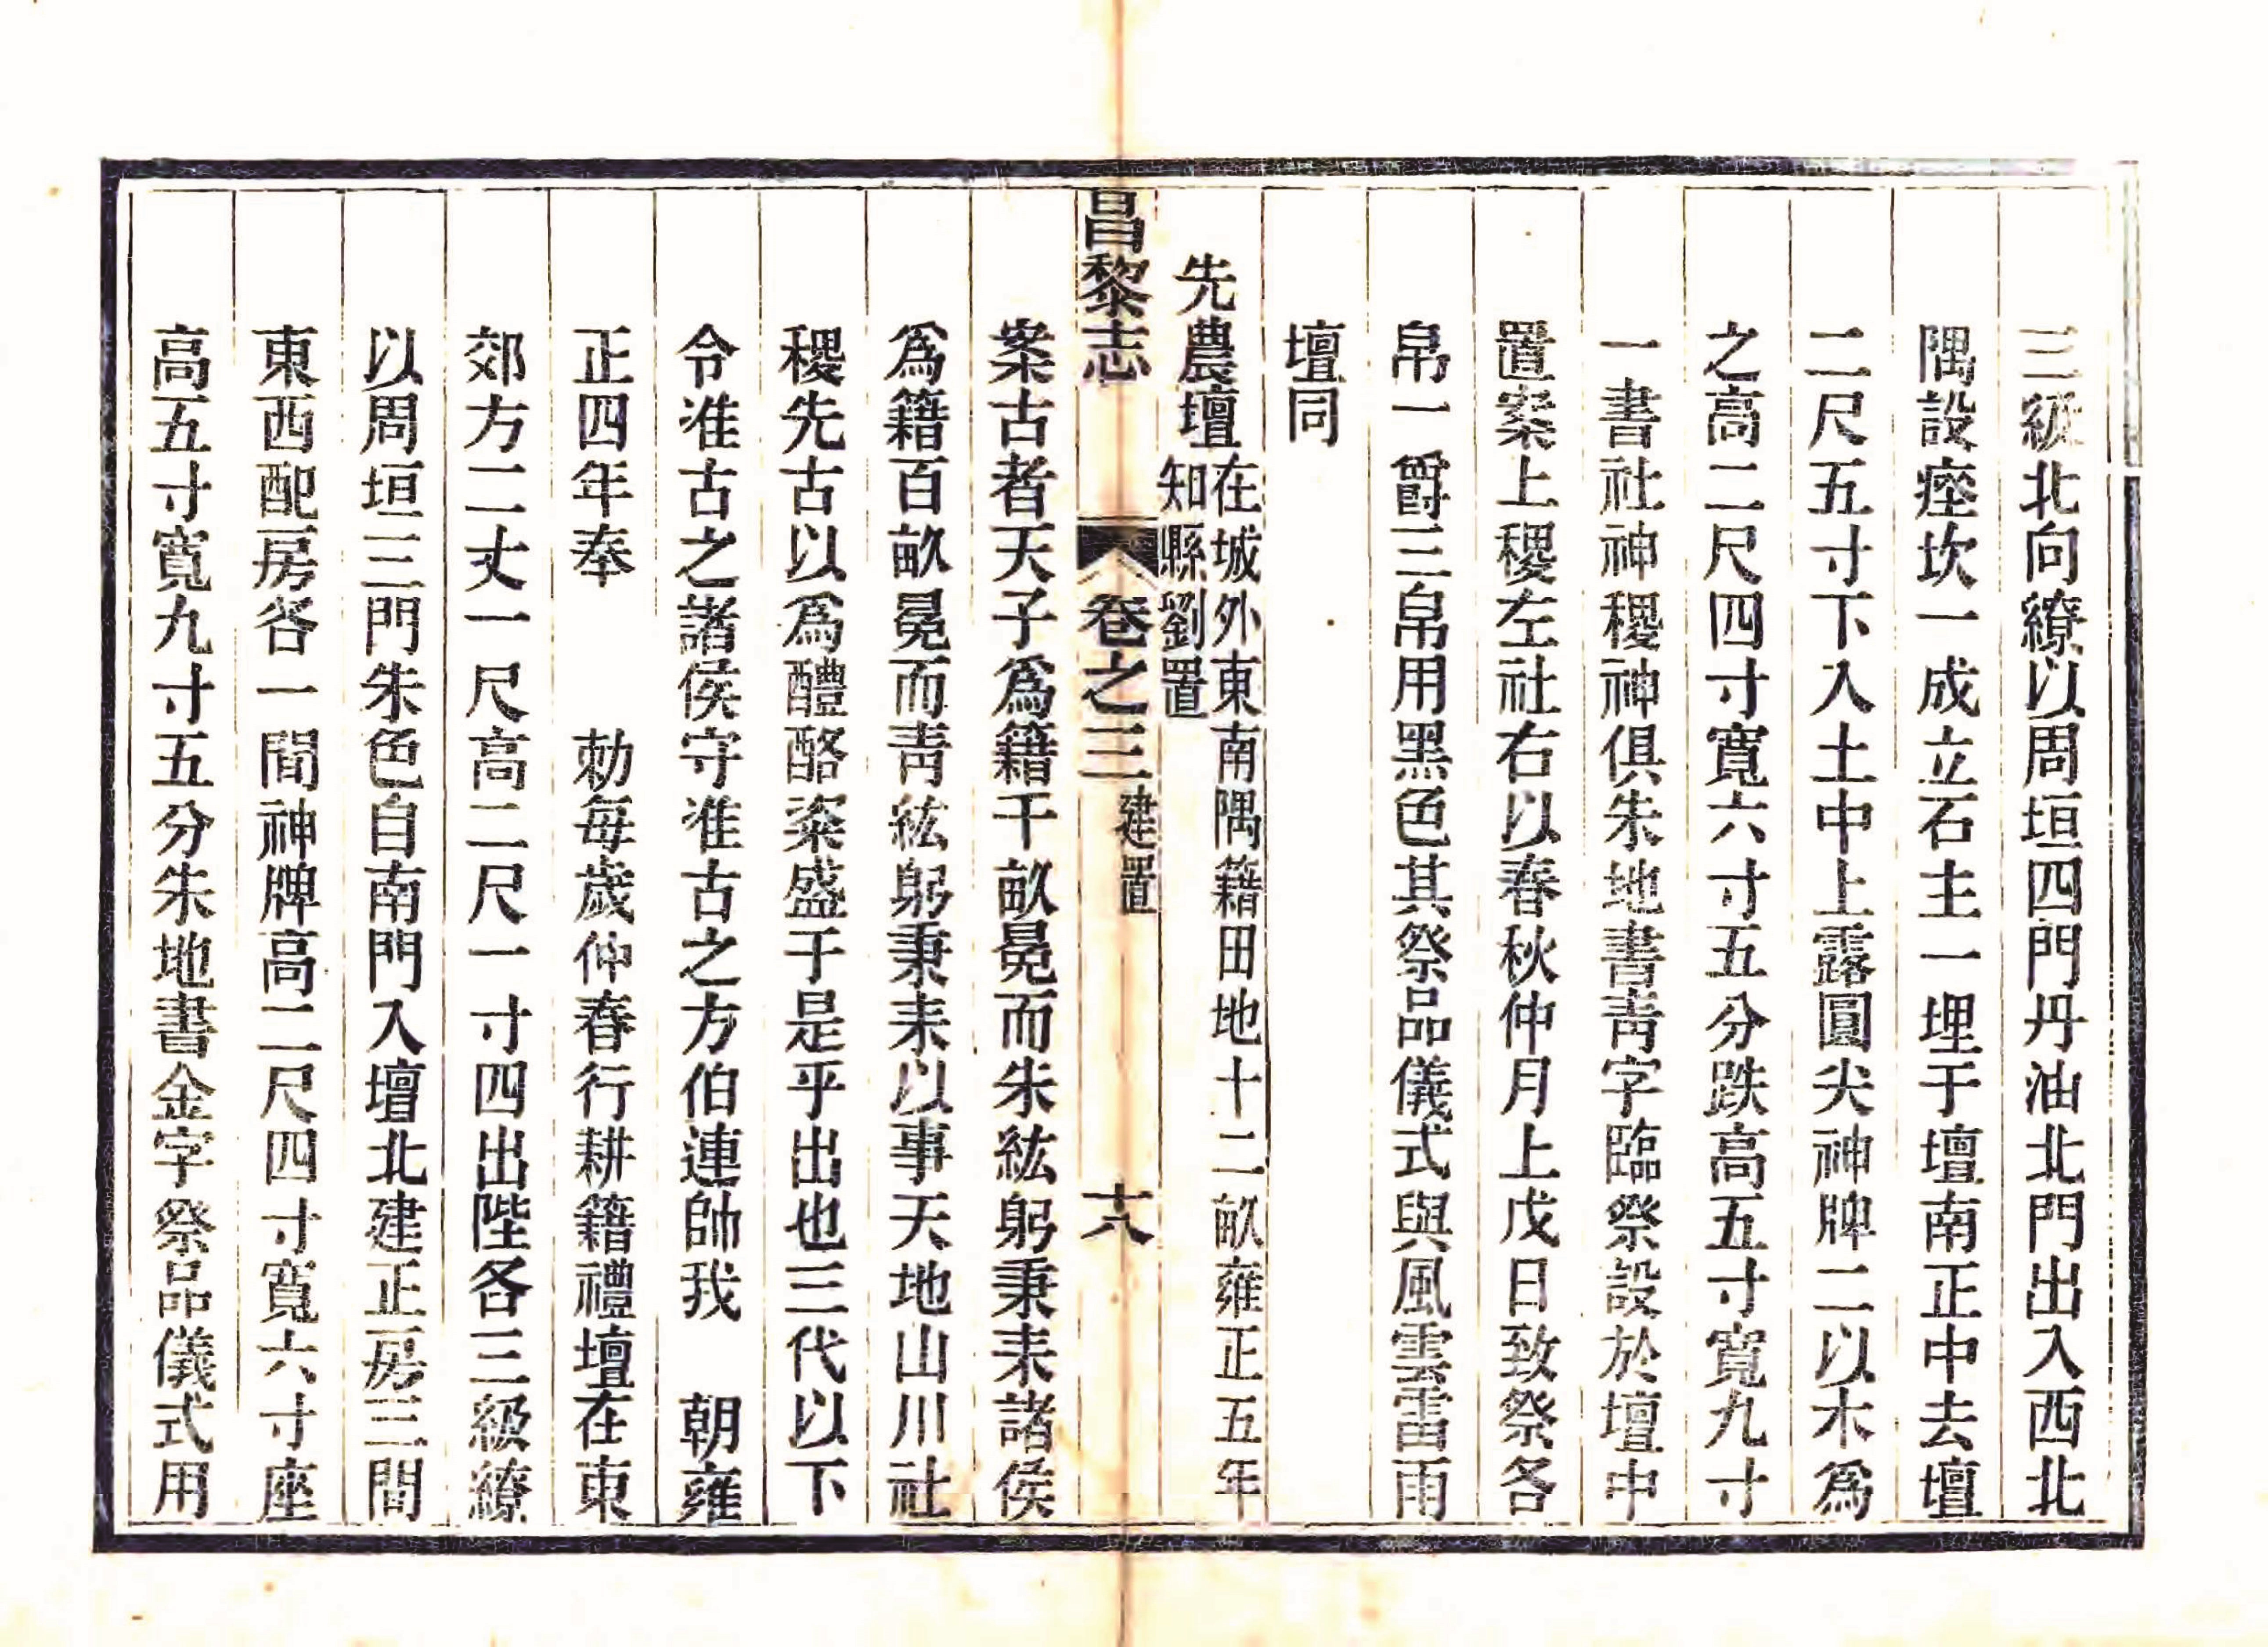 三級北向繚以周垣四門丹油北門出入西北
隅設瘞坎一成立石主一埋于壇南正中去壇
二尺五寸下入土中上露圓尖神牌二以木爲
之高二尺四寸寬六寸五分跌高五寸寬九寸
一書社神稷神俱朱地書青字臨祭設於壇中
置案上稷左社右以春秋仲月上戊日致祭各
帛一爵三帛用黑色其祭品儀式與風雲雷雨
壇同
先農壇在城外東南隅籍田地十二畝雍正五年
知縣劉置
昌黎志 卷之三 建置 十八
案古者天子爲籍千畝冕而朱紘躬秉耒諸侯
爲籍百畝冕而青紘躬秉耒以事天地山川社
稷先古以爲醴酪粢盛于是乎出也三代以下
令准古之諸侯守准古之方伯連帥我 朝雍
正四年奉 勅每歲仲春行耕籍禮壇在東
郊方二丈一尺高二尺一寸四出陛各三級繚
以周垣三門朱色自南門入壇北建正房三間
東西配房各一間神牌高二尺四寸寬六寸座
高五寸寬九寸五分朱地書金字祭品儀式用